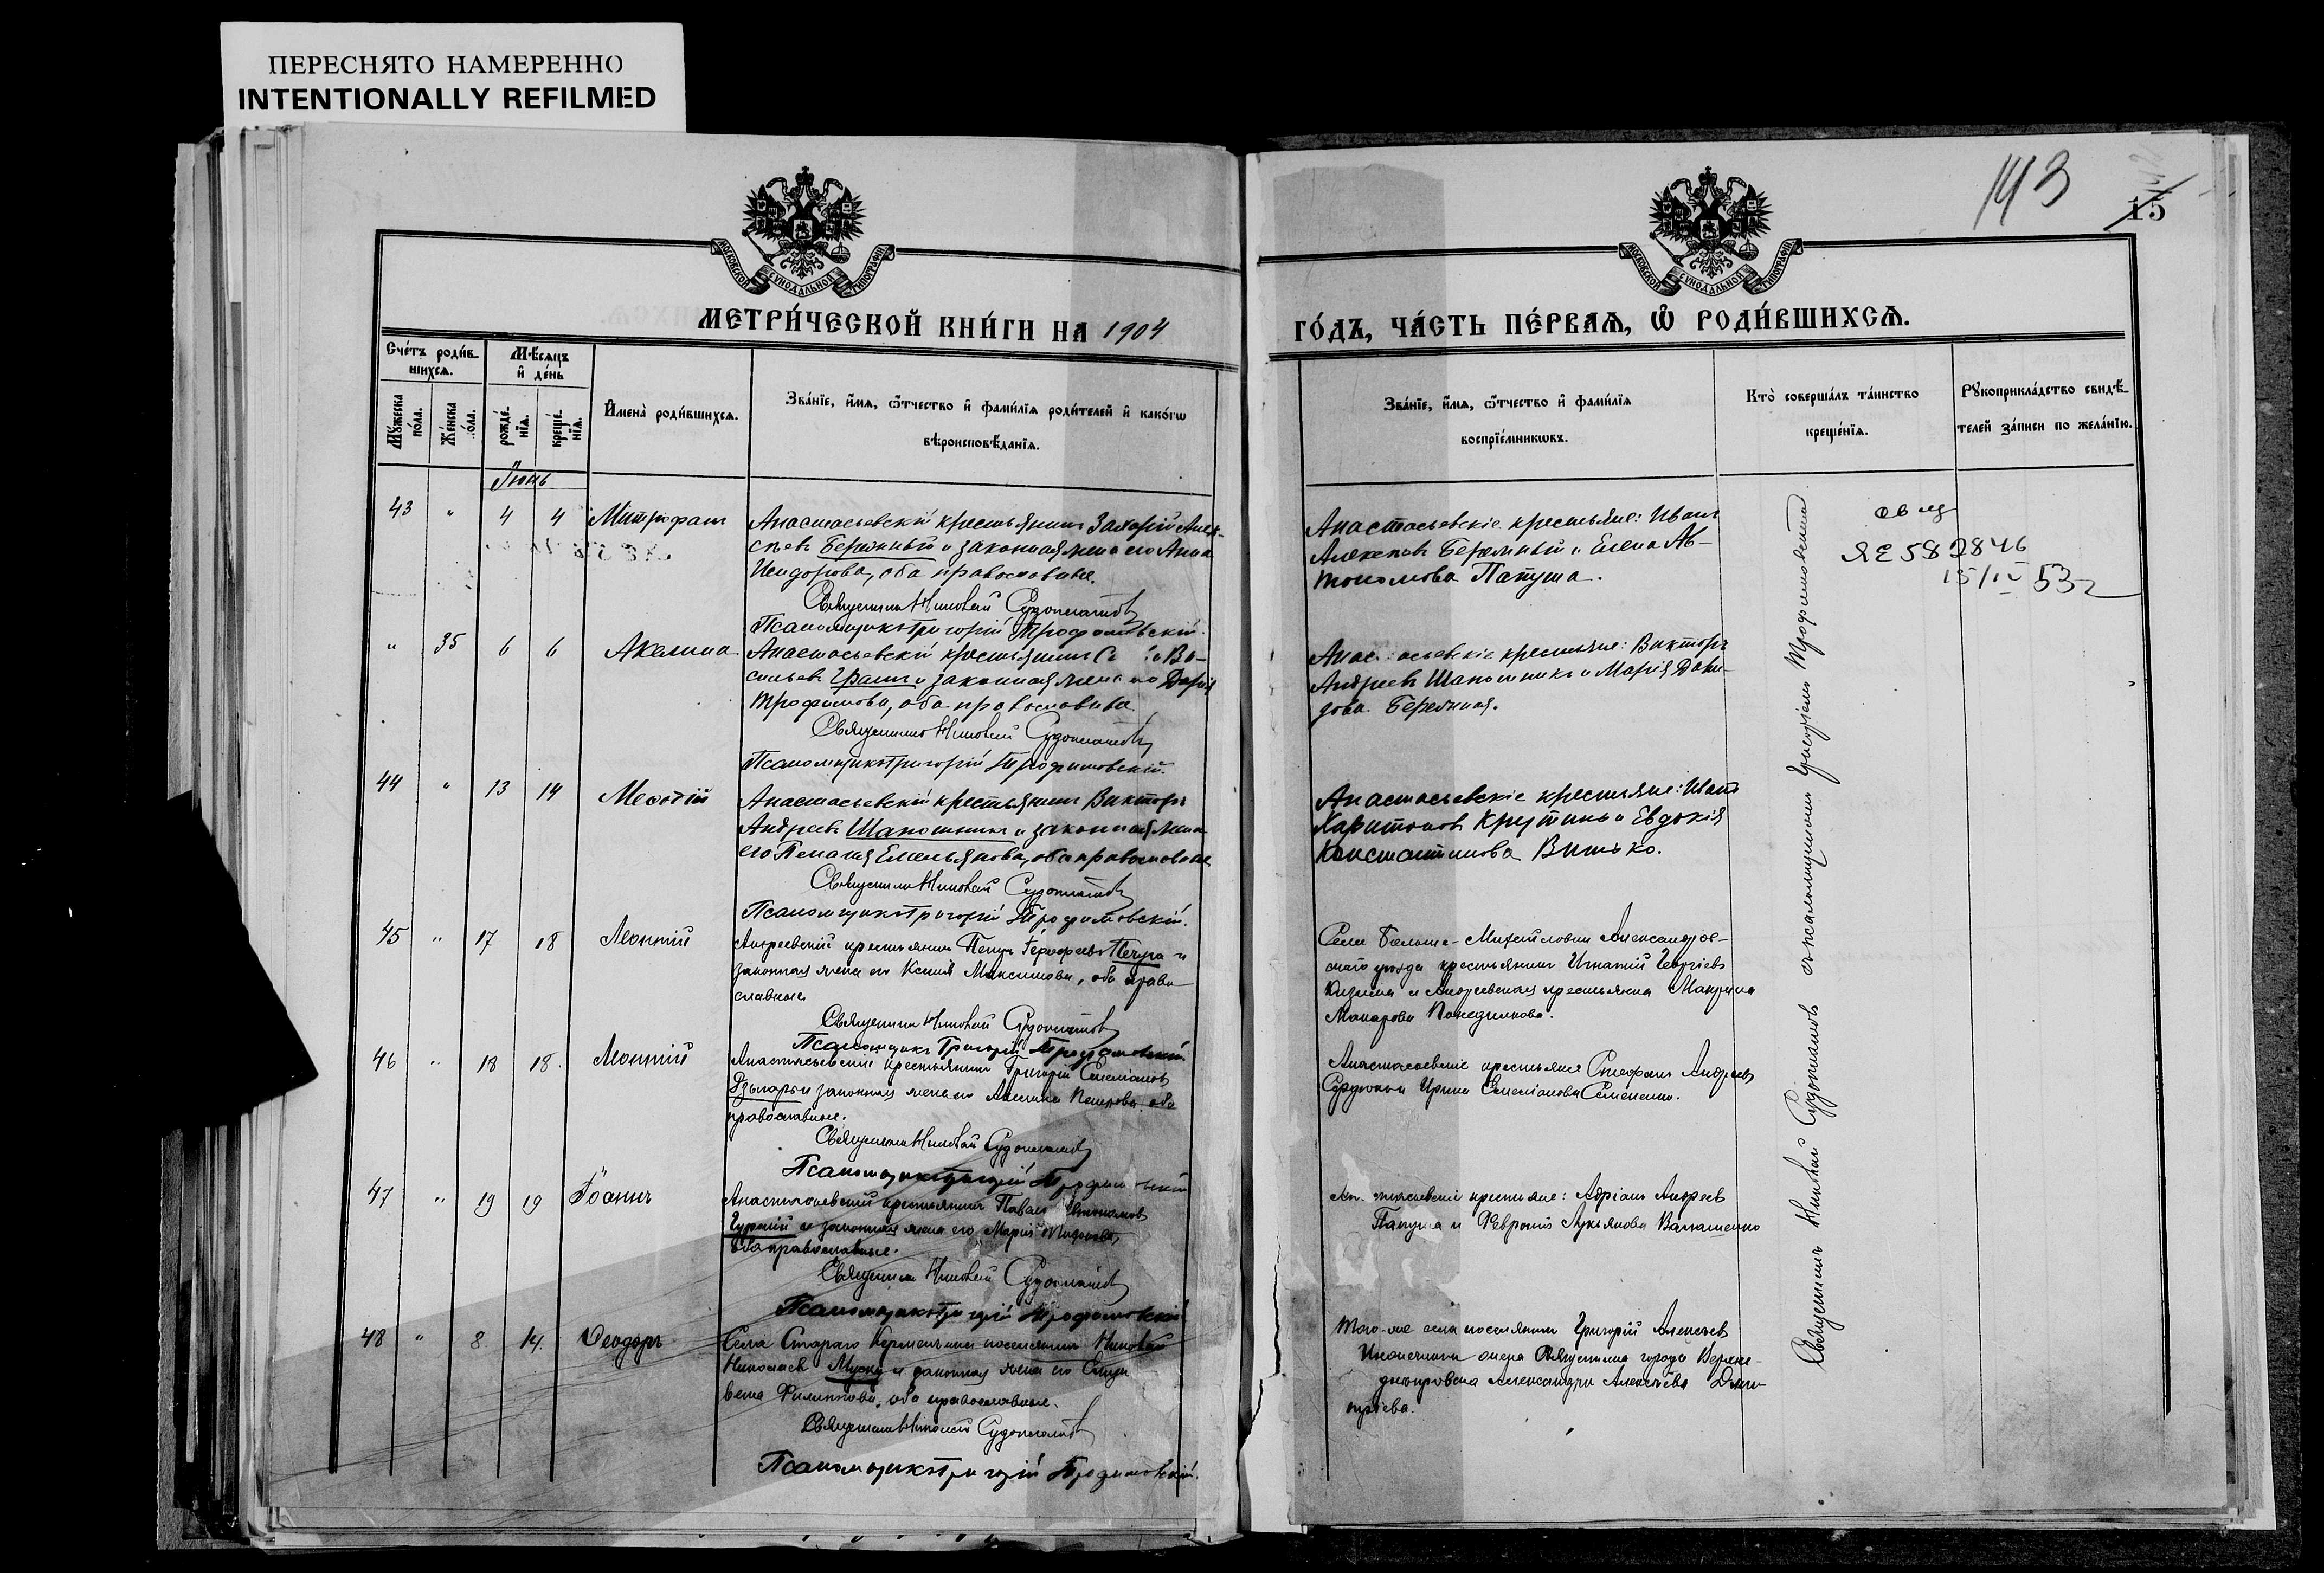 ПЕРЕСНЯТО НАМЕРЕННО
INTENTIONALLY REFILMED
143
15
МОСКОВСКОЙ СУНОДАЛЬНОЙ ТИПОГРАФІИ
МОСКОВСКОЙ СУНОДАЛЬНОЙ ТИПОГРАФІИ
МЕТРИ́ЧЕСКОЙ КНИ́ГИ НА 1904
ГО́ДЪ, ЧА́СТЬ ПЕ́РВАѦ, Ѡ҆ РОДИ́ВШИХСѦ.
Сче́тъ роди́в-
шихсѧ.
Мѣ́сѧцъ
и҆ де́нь
Мꙋ́жеска по́ла.
Же́нска по́ла.
рожде́-
нїѧ.
креще́-
нїѧ.
И҆мена̀ роди́вшихсѧ.
Зва́нїе, и҆́мѧ, ѻ҆́тчество и҆ фами́лїѧ роди́телей и҆ како́гѡ
вѣроисповѣ́данїѧ.
Зва́нїе, и҆́мѧ, ѻ҆́тчество и҆ фами́лїѧ
воспрїе́мникѡвъ.
Кто̀ соверша́лъ та́инство
креще́нїѧ.
Рꙋкоприкла́дство свидѣ́-
телей за́писи по жела́нїю.
Іюнь
43 " 4 4 Митрофанъ
Анастасьевскій крестьянинъ Захарій Алек-
сѣевъ Бережный и законная жена его Анна
Исидорова, оба православные.
Священникъ Николай Судоплатовъ
Псаломщикъ Григорій Трофимовскій.
Анастасьевскіе крестьяне: Иванъ
Алексѣевъ Бережный и Елена Ав-
тономова Папуша.
ЯЕ 582846
15/IV 53 г
" 35 6 6 Акилина
Анастасьевскій крестьянинъ Ва-
сильевъ и законная жена его Дарія
Трофимова, оба православные.
Священникъ Николай Судоплатовъ
Псаломщикъ Григорій Трофимовскій.
крестьяне: Викторъ
Андреевъ Шапошникъ и Марія Дави-
дова Бережная.
44 " 13 14 Меѳодій
Анастасьевскій крестьянинъ Викторъ
Андреевъ Шапошникъ и законная жена
его Пелагія Емельянова, оба православные
Священникъ Николай Судоплатовъ
Псаломщикъ Григорій Трофимовскій.
Анастасьевскіе крестьяне: Иванъ
Харитоновъ Крутько и Евдокія
Константинова Витько.
45 " 17 18 Леонтій
Андреевскій крестьянинъ Петръ и
законная жена его Ксенія Максимова, оба право-
славные
Священникъ Николай Судоплатовъ
Псаломщикъ Григорій Трофимовскій
Села Больше-Михайловки Александров-
скаго уѣзда крестьянинъ Игнатій Георгіевъ
и Андреевская крестьянка
Макарова
46 " 18 18. Леонтій
Анастасьевскій крестьянинъ Григорій
и законная жена его Петрова оба
православные.
Священникъ Николай Судоплатовъ
Псаломщикъ Григорій
Анастасьевскіе крестьяне Стефанъ Андреевъ
и Ирина
47 " 19 19 Іоаннъ
Анастасьевскій крестьянинъ Павелъ
и законная жена его Марія
оба православные.
Священникъ Николай Судоплатовъ
Псаломщикъ Григорій Трофимовскій
крестьяне: Адріанъ Андреевъ
Папуша и Февронія Лукьянова
48 " 8. 14. Ѳеодоръ
Села Стараго Керменчика поселянинъ Николай
Николаевъ и законная жена его Елиза-
вета Филиппова, оба православные.
Священникъ Николай Судоплатовъ
Псаломщикъ Григорій Трофимовскій.
Того-же села поселянинъ Григорій Алексѣевъ
и города Верхне-
днѣпровска Александра Алексѣева Дми-
тріева.
Священникъ Николай Судоплатовъ съ псаломщикомъ Григоріемъ Трофимовскимъ